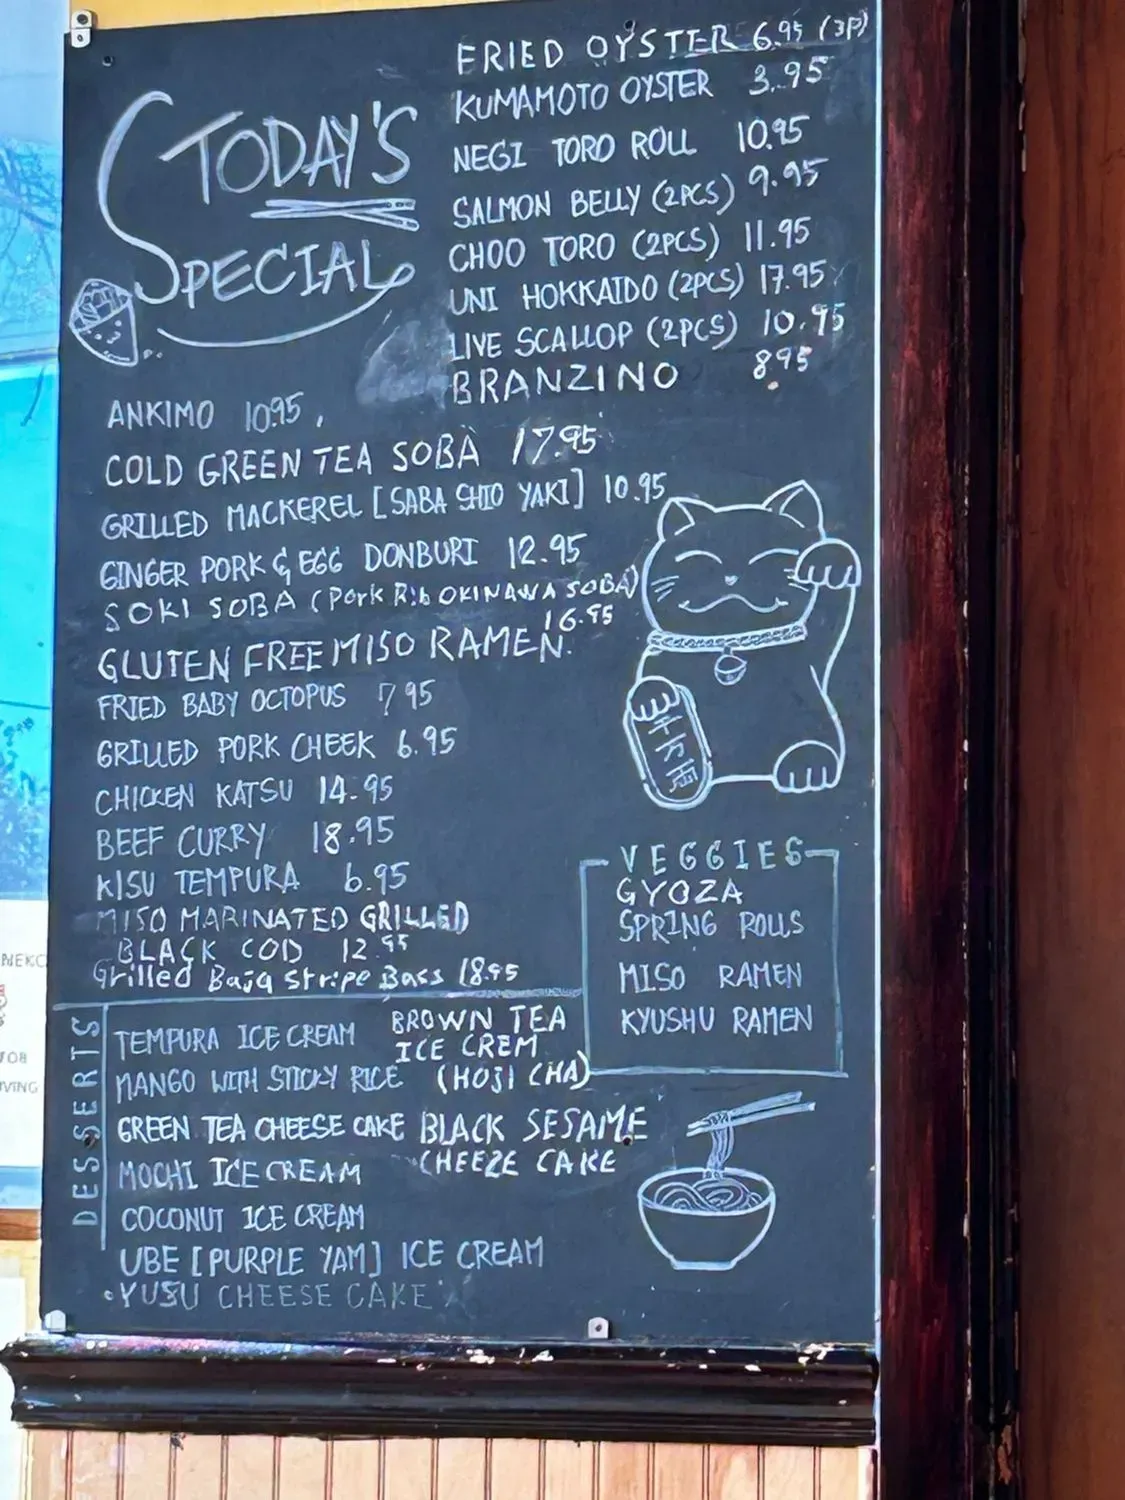 TODAY'S
SPECIAL
FRIED OYSTER 6.95 (3P)
KUMAMOTO OYSTER 3.95
NEGI TORO ROLL 10.95
SALMON BELLY (2PCS) 9.95
CHOO TORO (2PCS) 11.95
UNI HOKKAIDO (2PCS) 17.95
LIVE SCALLOP (2PCS) 10.95
BRANZINO 8.95
ANKIMO 10.95
COLD GREEN TEA SOBA 17.95
GRILLED MACKEREL [SABA SHIO YAKI] 10.95
GINGER PORK & EGG DONBURI 12.95
SOKI SOBA (Pork Rib OKINAWA SOBA)
16.95
GLUTEN FREE MISO RAMEN.
FRIED BABY OCTOPUS 7.95
GRILLED PORK CHEEK 6.95
CHICKEN KATSU 14.95
BEEF CURRY 18.95
KISU TEMPURA 6.95
MISO MARINATED GRILLED
BLACK COD 12.95
Grilled Baja Stripe Bass 18.95
VEGGIES
GYOZA
SPRING ROLLS
MISO RAMEN
KYUSHU RAMEN
DESSERTS
TEMPURA ICE CREAM
MANGO WITH STICKY RICE
GREEN TEA CHEESE CAKE
MOCHI ICE CREAM
COCONUT ICE CREAM
UBE [PURPLE YAM] ICE CREAM
•YUSU CHEESE CAKE
BROWN TEA
ICE CREM
(HOJI CHA)
BLACK SESAME
CHEEZE CAKE
NEKO